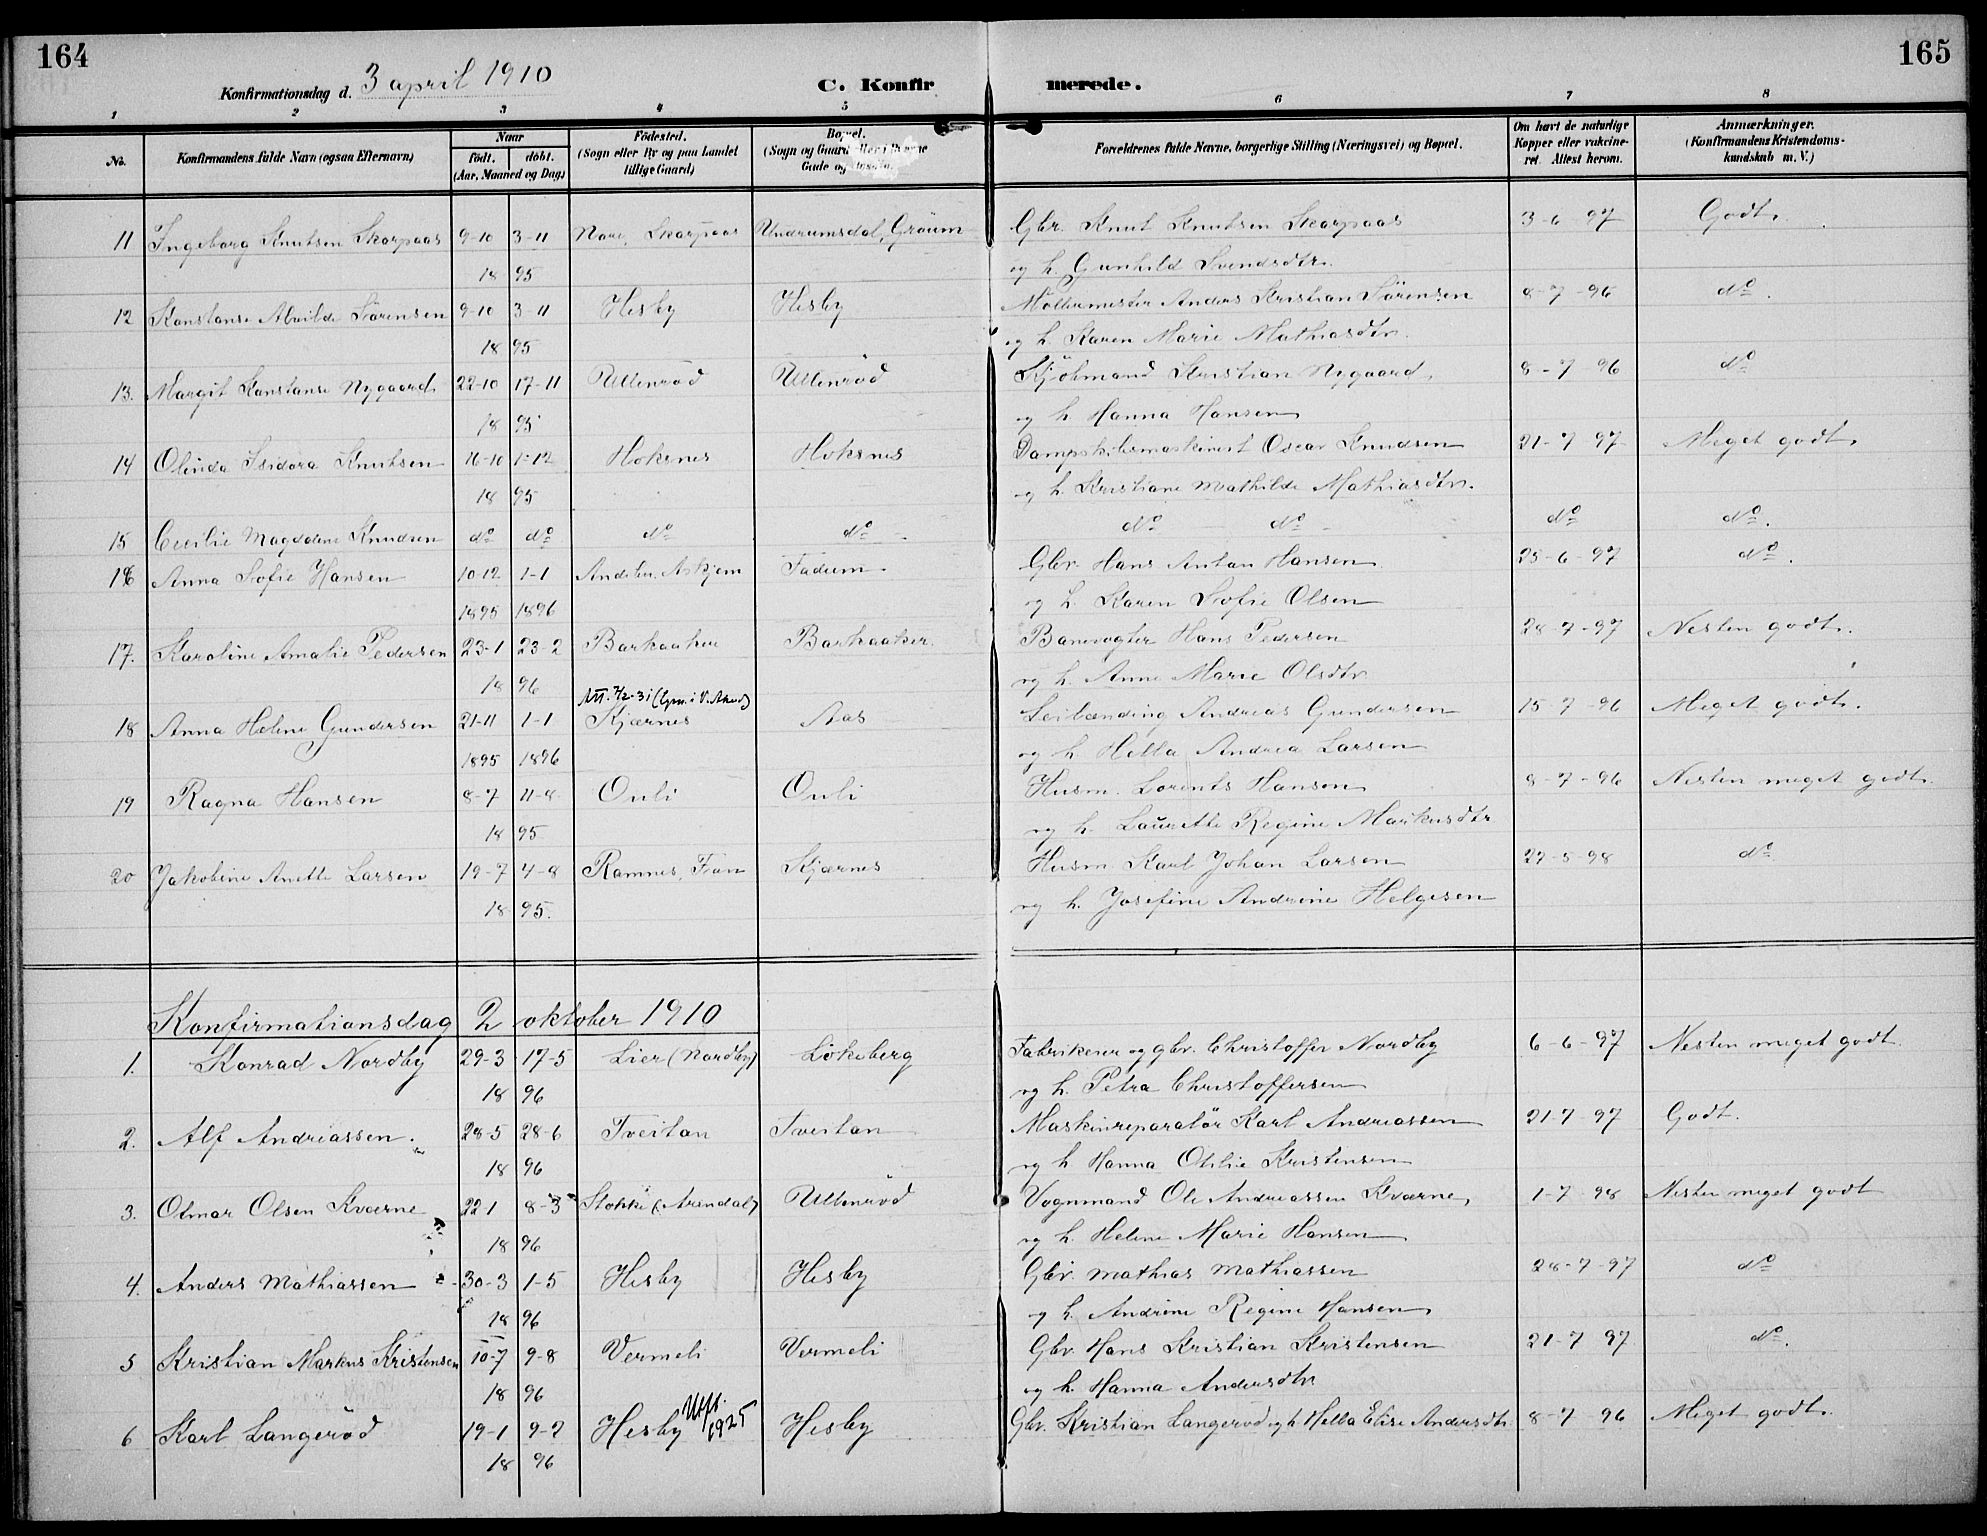 164
165
Konfirmationsdag d. 3 april 1910
C. Konfir merede.
1 2 3 4 5 6 7 8
No. Konfirmandens fulde Navn (ogsaa Efternavn) Naar født. døbt. (Aar, Maaned og Dag) Fødested. (Sogn eller By og paa Landet tillige Gaard) Bopæl. (Sogn og Gaard eller Gade og Forældrenes fulde Navne, borgerlige Stilling (Næringsvei) og Bopæl. Om havt de naturlige Kopper eller vakcineret. Attest herom. Anmærkninger. (Konfirmandens Kristendomskundskab m. V.)
11 Ingeborg Knutsen Skarpaas 9-10 3-11 Nore, Skarpaas Undrumsdal, Grøum Gbr. Knut Knutsen Skarpaas 3-6-97 Godt.
18 95 og h. Gunhild Svendsdtr.
12 Konstanse Alvilde Sørensen 9-10 3-11 Hesby Hesby Møllermester Anders Kristian Sørensen 8-7-96 do.
18 95 og h. Karen Marie Mathiasdtr.
13. Margit Konstanse Nygaard 22-10 17-11 Ullenrød Ullenrød Kjøbmand Kristian Nygaard 8-7 96 do
18 95 og h. Hanna Hansen
14 Olinda Isidora Knutsen 16-10 1-12 Hoksnes Hoksnes Dampskibsmaskinist Oscar Knudsen 21-7-97 Meget godt.
18 95 og h. Kristiane Mathilde Mathiasdtr.
15 Cecilie Magdalene Knudsen do do do do do do do do.
16 Anna Sofie Hansen 10-12 1-1 Andebu, Askjem Fadum Gbr. Hans Anton Hansen 25-6-97 do.
1895 1896 og h. Karen Sofie Olsen
17. Karoline Amalie Pedersen 23-1 23-2 Barkaaker Barkaaker. Banevogter Hans Pedersen 28-7-97 Nesten godt.
18 96 og h. Anne Marie Olsdtr.
Att. 7/2-31
18 Anna Helene Gundersen 21-11 1-1 Kjærnes Aas Leilænding Andreas Gundersen 15-7-96 Meget godt.
1895 1896 og h. Hella Andrea Larsen
19 Ragna Hansen 8-7 11-8 Onli Onli Husm. Lorents Hansen 8-7-96 Nesten meget godt.
18 95 og h. Laurette Regine Markusdtr
20 Jakobine Anette Larsen 19-7 4-8 Ramnes, Fon Kjærnes Husm Karl Johan Larsen 27-5-98 do
18 95. og h. Josefine Andrine Helgesen
Konfirmationsdag 2 oktober 1910
1. Konrad Nordby 29-3 17-5 Lier (Nordby) Løkeberg Fabrikeier og gbr. Christoffer Nordby 6-6-97 Nesten meget godt.
18 96 og h. Petra Christoffersen
2. Alf Andreassen. 28-5 28-6 Tveitan Tveitan Maskinreparatør Karl Andreassen 21-7-97 Godt.
18 96 og h Hanna Othilie Kristensen
3. Olmar Olsen Kværne 22-1 8-3 Stokke (Arendal) Ullenrød Vognmand Ole Andreassen Kværne, 1-7-98 Nesten meget godt
18 96 og h. Helene Marie Hansen
4. Anders Mathiassen 30-3 1-5 Hesby Hesby Gbr. Mathias Mathiassen 28-7-97 do
18 96 og h. Andrine Regine Hansen
5 Kristian Markus Kristensen 10-7 9-8 Vermeli Vermeli Gbr. Hans Kristian Kristensen 21-7 97 do.
18 96 og h. Hanna Andersdtr
6 Karl Langerød 19-1 9-2 Hesby Utfl. 1925 Hesby Gbr. Kristian Langerød og h Hella Elise Andersdtr 8-7 96 Meget godt.
18 96